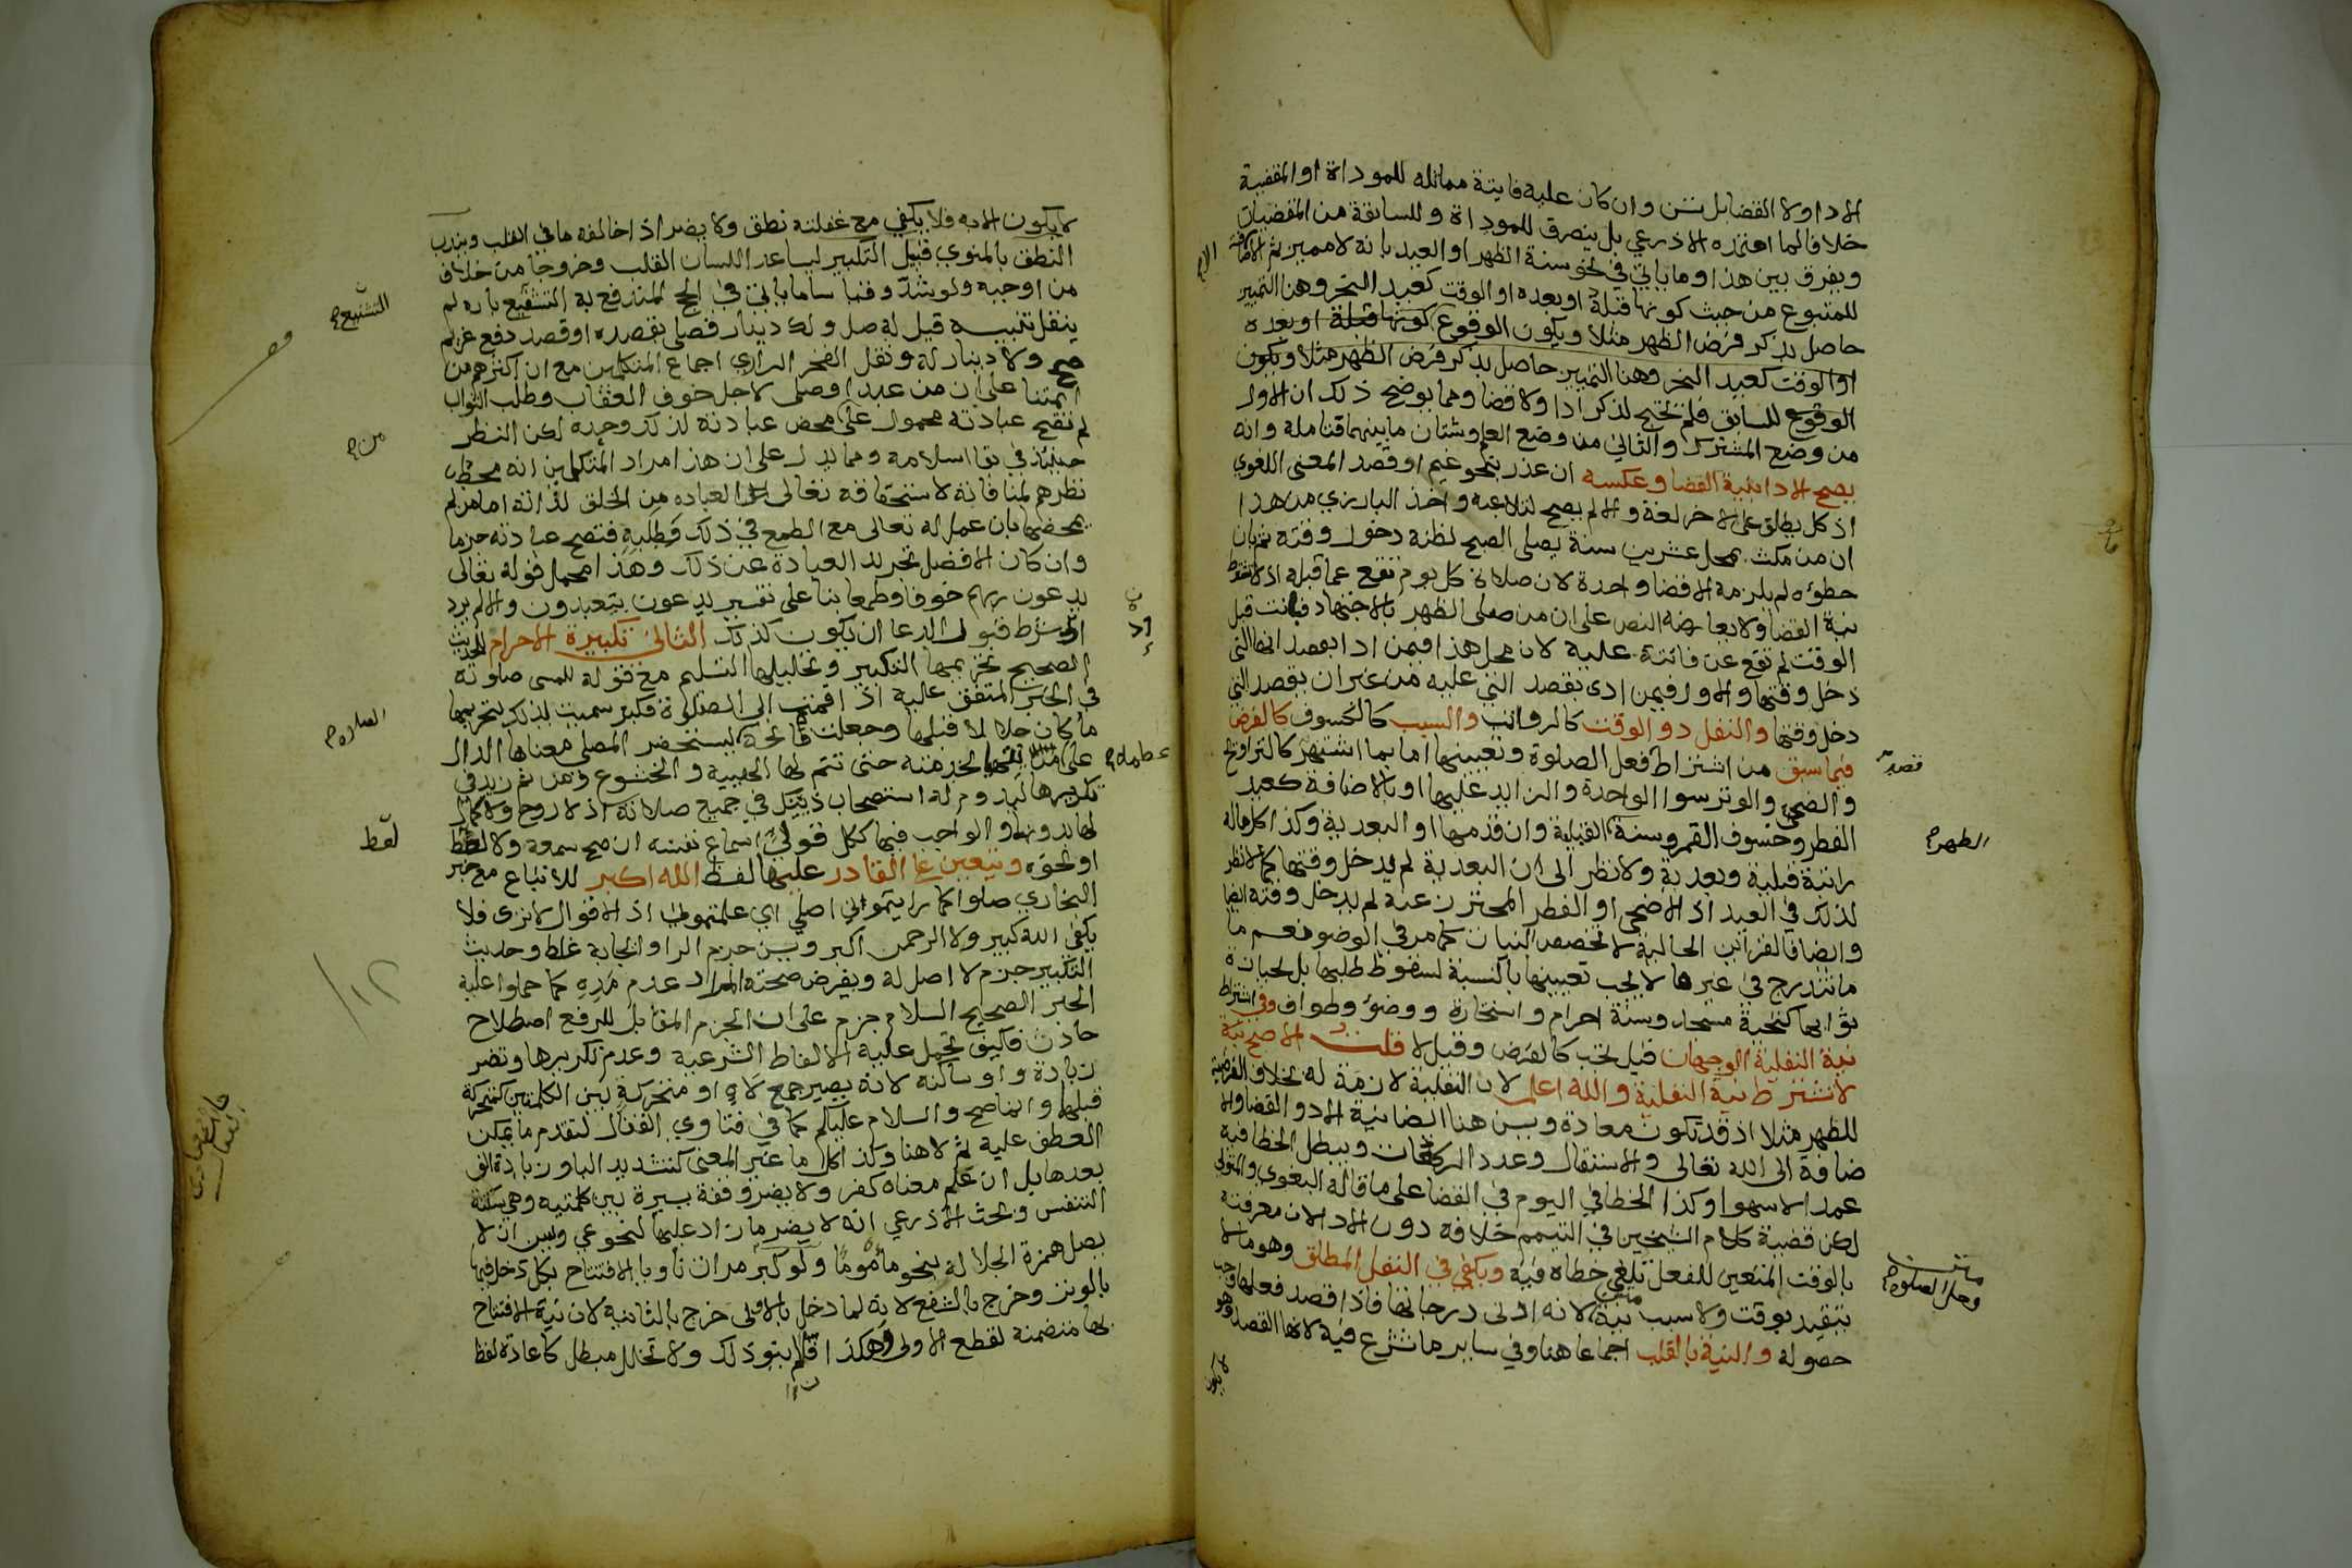 الادا ولا القضا بل تسن وان كان عليه فايتة مماثلة للموداة او المقضية
خلافا لما اعتمده الاذرعي بل ينصرف للموداة وللسابقة من المقضيات
ويفرق بين هذا وما ياتي في نحو سنة الظهر او العيد بانه لا مميز ثم الاضافة
للمتبوع من حيث كونها قبله او بعده او الوقت كعيد النحر وهنا التمييز
حاصل بذكر فرض الظهر مثلا ويكون الوقوع كونها قبله او بعده
او الوقت كعيد النحر وهنا التمييز حاصل بذكر فرض الظهر مثلا ويكون
الوقوع للسابق فلم تحتج لذكر ادا ولا قضا ومما يوضح ذلك ان الاول
من وضع المشترك والثاني من وضع العلم وشتان ما بينهما فتامله وانه
يصح الادا بنية القضا وعكسه ان عذر بنحو غيم او قصد المعنى اللغوي
اذ كل يطلق على الاخر لغة والا لم يصح لتلاعبه واخذ البارزي من هذا
ان من مكث بمحل عشرين سنة يصلي الصبح لظنه دخول وقته ثم بان
خطؤه لم يلزمه الا قضا واحدة لان صلاة كل يوم تقع عما قبله اذ لا تشترط
نية القضا ولا يعارضه النص على ان من صلى الظهر بالاجتهاد فبانت قبل
الوقت لم تقع عن فائتة عليه لان محل هذا فيمن ادا بقصد انها التي
دخل وقتها والاول فيمن ادى بقصد التي عليه من غير ان يقصد التي
دخل وقتها والنفل ذو الوقت كالرواتب والسبب كالكسوف كالفرض
فيما سبق من اشتراط فعل الصلوة وتعيينها اما بما اشتهر كالتراويح
والضحى والوتر سوا الواحدة والزايد عليها او بالاضافة كعيد
الفطر وخسوف القمر وسنة القبلية وان قدمها او البعدية وكذا كل ماله
راتبة قبلية وبعدية ولا نظر الى ان البعدية لم يدخل وقتها كما لا نظر
لذلك في العيد اذ الاضحى او الفطر المحترز عنه لم يدخل وقته ايضا
وايضا فالقراين الحالية لا تخصص النيات كما مر في الوضوء نعم ما
ما تندرج في غيرها لا يجب تعيينها بالنسبة لسقوط طلبها بل لحيازة
ثوابها كتحية مسجد وسنة احرام واستخارة ووضوء وطواف وفي اشتراط
نية النفلية الوجهان قيل تجب كالفرض وقيل لا قلت الاصح نية
لا تشترط نية النفلية والله اعلم لان النفلية لازمة له بخلاف الفرضية
للظهر مثلا اذ قد تكون معادة ويسن هنا ايضا نية الادا والقضا والا
ضافة الى الله تعالى والاستقبال وعدد الركعات ويبطل الخطا فيه
عمدا لا سهوا وكذا الخطا في اليوم في القضا على ما قاله البغوي والمتولي
لكن قضية كلام الشيخين في التيمم خلافه دون الادا لان معرفته
بالوقت المتعين للفعل تلغي خطاه فيه ويكفي في النفل المطلق وهو ما لا
يتقيد بوقت ولا سبب نية لانه ادنى درجاتها فاذا قصد فعلها وجب
حصوله والنية بالقلب اجماعا هنا وفي ساير ما تشرع فيه لانها القصد وهو
لا يكون
قصد
الظهر
وحل الصلوة
لا يكون الا به فلا يكفي مع غفلته نطق ولا يضر اذا خالفه ما في القلب ويندب
النطق بالمنوي قبيل التكبير ليساعد اللسان القلب وخروجا من خلاف
من اوجبه ولو شذ وقياسا ما ياتي في الحج المندفع به التشنيع بانه لم
ينقل تنبيه قيل له صل ولك دينار فصلى بقصده او قصد دفع غريم
صح ولا دينار له ونقل الفخر الرازي اجماع المتكلمين مع ان اكثرهم من
ايمتنا على ان من عبد او صلى لاجل خوف العقاب وطلب الثواب
لم تصح عبادته محمول على محض عبادته لذلك وحده لكن النظر
حينئذ في بقا اسلامه ومما يدل على ان هذا مراد المتكلمين انه محط
نظرهم لمنافاته لاستحقاقه تعالى العباده من الخلق لذاته اما من لم
يمحضها بان عمل له تعالى مع الطمع في ذلك وطلبه فتصح عبادته جزما
وان كان الافضل تجريد العبادة عن ذلك وهذا محمل قوله تعالى
يدعون ربهم خوفا وطمعا بنا على تفسير يدعون بيتعبدون والا لم يرد
او شرط قبول الدعا ان يكون كذلك الثاني تكبيرة الاحرام للحديث
الصحيح تحريمها التكبير وتحليلها التسليم مع قوله للمسي صلاته
في الخبر المتفق عليه اذا قمت الى الصلوة فكبر سميت بذلك لتحريمها
ما كان حلالا قبلها وجعلت فاتحة ليستحضر المصلي معناها الدال
على من تهيا لخدمته حتى تتم له الهيبة والخشوع ومن ثم زيد في
تكريرها ليدوم له استصحاب ذينك في جميع صلاته اذ لا روح ولا كمال
لها بدونها والواجب فيها ككل قولي اسماع نفسه ان صح سمعه ولا لغط
او نحوه ويتعين على القادر عليها لفظ الله اكبر للاتباع مع خبر
البخاري صلوا كما رايتموني اصلي اي علمتموني اذ الاقوال لا ترى فلا
يكفي الله كبير ولا الرحمن اكبر ويسن جزم الرا وايجابه غلط وحديث
التكبير جزم لا اصل له وبفرض صحته المراد عدم مده كما حملوا عليه
الخبر الصحيح السلام جزم على ان الجزم المقابل للرفع اصطلاح
حادث فكيف تحمل عليه الالفاظ الشرعية وعدم تكريرها وتضر
زيادة واو ساكنه لانه يصير جمع لاه او متحركة بين الكلمتين كمتحركة
قبلها وانما صح والسلام عليكم كما في فتاوي القفال لتقدم ما يمكن
العطف عليه ثم لا هنا وكذا كل ما غير المعنى كتشديد البا وزيادة الف
بعدها بل ان علم معناه كفر ولا يضر وقفة يسيرة بين كلمتيه وهي سكتة
التنفس وبحث الاذرعي انه لا يضر ما زاد عليها لنحو عي ويسن ان لا
يصل همزة الجلالة بنحو ماموما ولو كبر مرات ناويا الافتتاح بكل دخل فيها
بالوتر وخرج بالشفع لانه لما دخل بالاولى خرج بالثانية لان نية الافتتاح
بها متضمنة لقطع الاولى وهكذا فان لم ينو ذلك ولا تخلل مبطل كاعادة لفظ
التشنيع
من
الصلاه
لغط